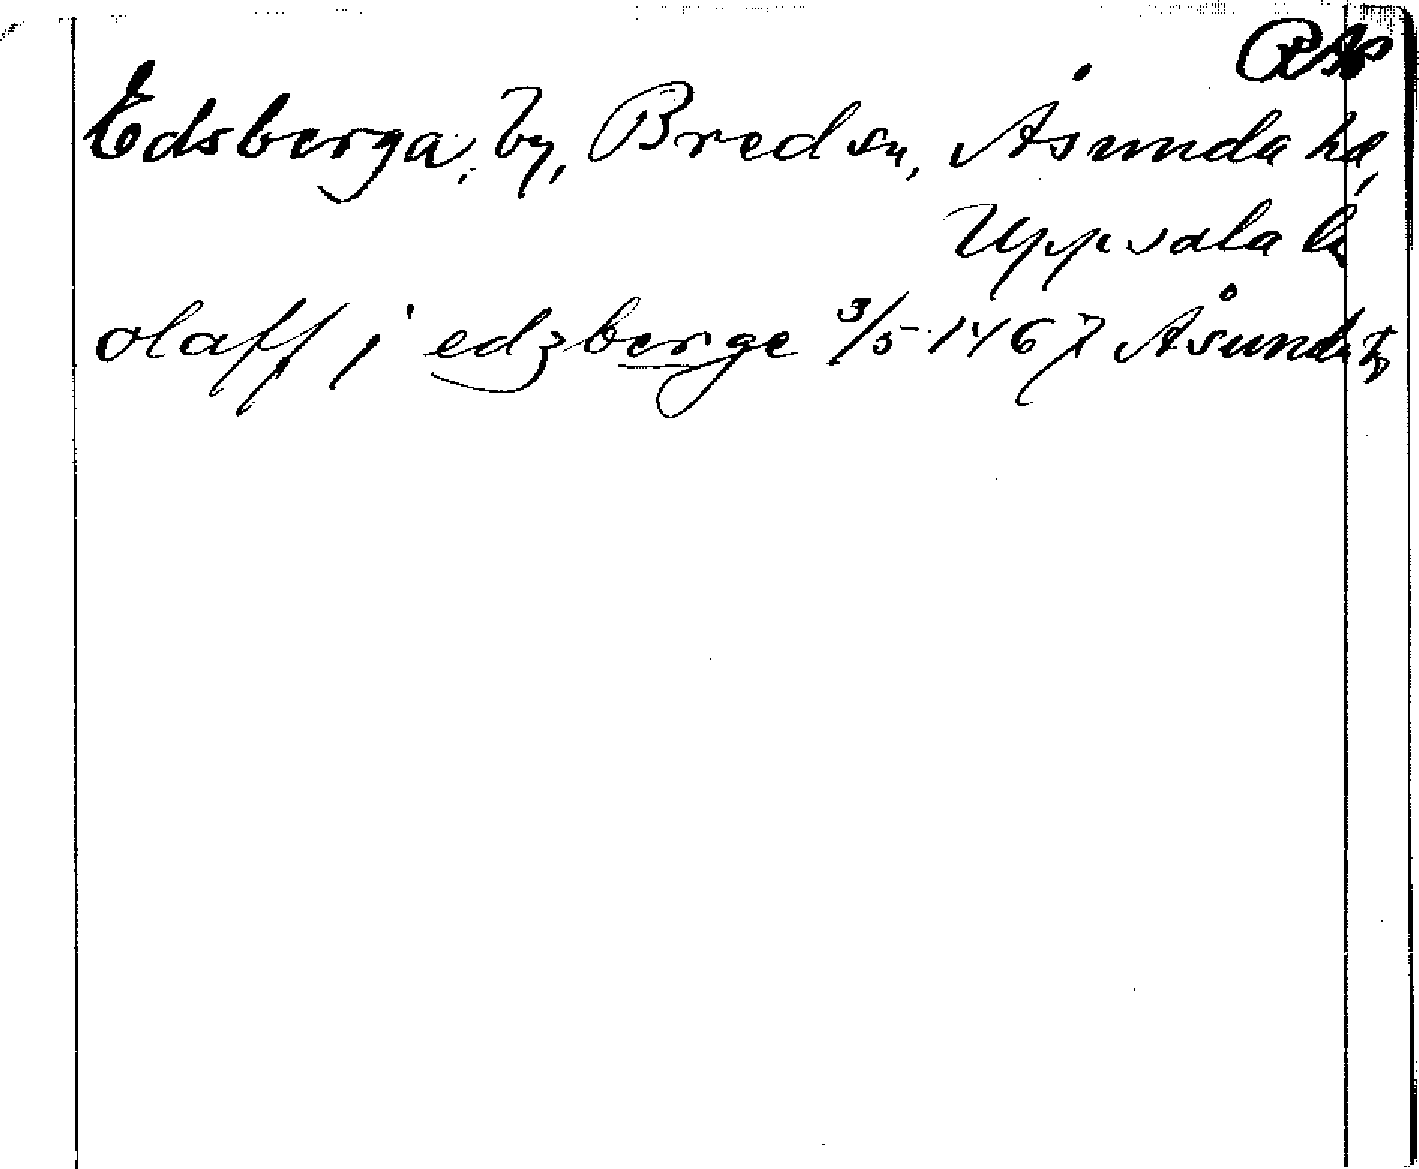 RAp
Edsberga, by, Bred sn, Åsunda hd,
Uppsala län
olaff i edzberge 3/5 1467 Åsunda tg